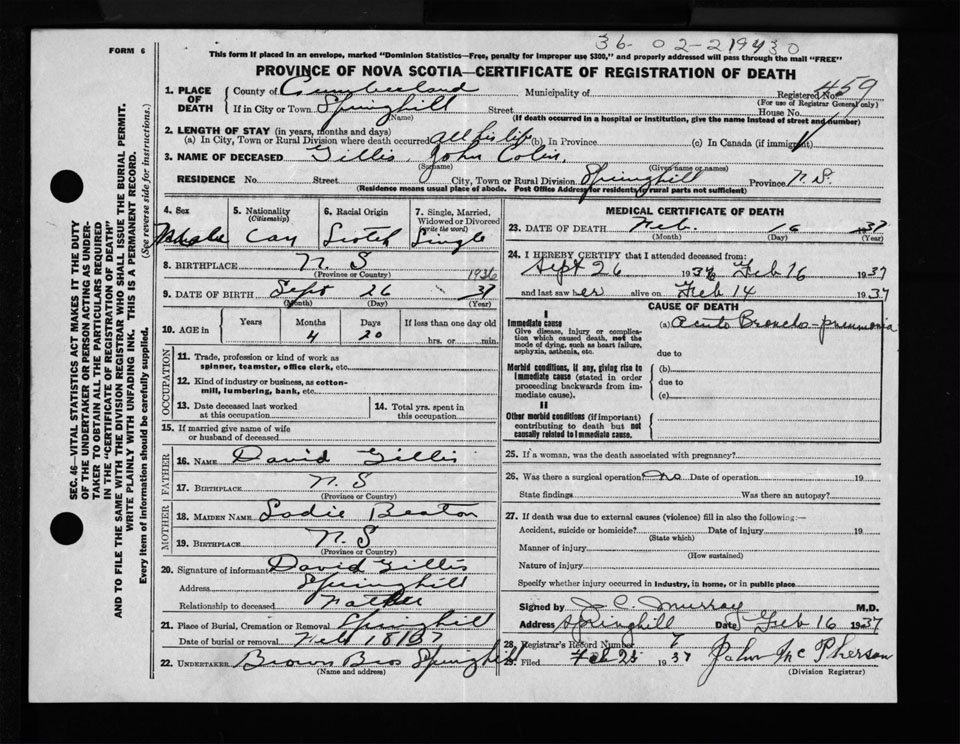 36-02-219430
FORM 6
This form if placed in an envelope, marked "Dominion Statistics—Free, penalty for improper use $300," and properly addressed will pass through the mail "FREE"
PROVINCE OF NOVA SCOTIA—CERTIFICATE OF REGISTRATION OF DEATH
1. PLACE OF DEATH County of Cumberland Municipality of Registered No. 459
(For use of Registrar General only)
If in City or Town Springhill Street House No.
(Name) (If death occurred in a hospital or institution, give the name instead of street and number)
2. LENGTH OF STAY (in years, months and days)
(a) In City, Town or Rural Division where death occurred all his life (b) In Province (c) In Canada (if immigrant)
3. NAME OF DECEASED Gillis, John Colin
(Surname) (Given name or names)
RESIDENCE No. Street City, Town or Rural Division Springhill Province N.S.
(Residence means usual place of abode. Post Office Address for residents in rural parts not sufficient)
4. Sex Male
5. Nationality (Citizenship) Can
6. Racial Origin Scotch
7. Single, Married, Widowed or Divorced (write the word) Single
8. BIRTHPLACE N. S
(Province or Country)
1936
9. DATE OF BIRTH Sept 26 37
(Month) (Day) (Year)
10. AGE in Years Months Days If less than one day old
4 20 hrs. or min.
OCCUPATION
11. Trade, profession or kind of work as spinner, teamster, office clerk, etc.
12. Kind of industry or business, as cotton-mill, lumbering, bank, etc.
13. Date deceased last worked at this occupation
14. Total yrs. spent in this occupation
15. If married give name of wife or husband of deceased
FATHER
16. NAME David Gillis
17. BIRTHPLACE N. S
(Province or Country)
MOTHER
18. MAIDEN NAME Sadie Beaton
19. BIRTHPLACE N. S
(Province or Country)
20. Signature of informant David Gillis
Address Springhill
Relationship to deceased Father
21. Place of Burial, Cremation or Removal Springhill
Date of burial or removal Feb 18/37
22. UNDERTAKER Brown Bros Springhill
(Name and address)
MEDICAL CERTIFICATE OF DEATH
23. DATE OF DEATH Feb. 16 1937
(Month) (Day) (Year)
24. I HEREBY CERTIFY that I attended deceased from:
Sept 26 1936 Feb 16 1937
and last saw her alive on Feb 14 1937
CAUSE OF DEATH
I
Immediate cause
Give disease, injury or complication which caused death, not the mode of dying, such as heart failure, asphyxia, asthenia, etc.
(a) Acute Broncho-pneumonia
due to
Morbid conditions, if any, giving rise to immediate cause (stated in order proceeding backwards from immediate cause).
(b)
due to
(c)
II
Other morbid conditions (if important) contributing to death but not causally related to immediate cause.
25. If a woman, was the death associated with pregnancy?
26. Was there a surgical operation? no Date of operation 19
State findings Was there an autopsy?
27. If death was due to external causes (violence) fill in also the following:—
Accident, suicide or homicide? Date of injury 19
(State which)
Manner of injury
(How sustained)
Nature of injury
Specify whether injury occurred in industry, in home, or in public place
Signed by J. C. Murray M.D.
Address Springhill Date Feb 16 1937
28. Registrar's Record Number 7
29. Filed Feb 25 1937 John McPherson
(Division Registrar)
SEC. 46—VITAL STATISTICS ACT MAKES IT THE DUTY
OF THE UNDERTAKER OR PERSON ACTING AS UNDER-
TAKER TO OBTAIN ALL THE PARTICULARS REQUIRED
IN THE "CERTIFICATE OF REGISTRATION OF DEATH"
AND TO FILE THE SAME WITH THE DIVISION REGISTRAR WHO SHALL ISSUE THE BURIAL PERMIT.
WRITE PLAINLY WITH UNFADING INK. THIS IS A PERMANENT RECORD.
Every item of information should be carefully supplied. (See reverse side for instructions.)